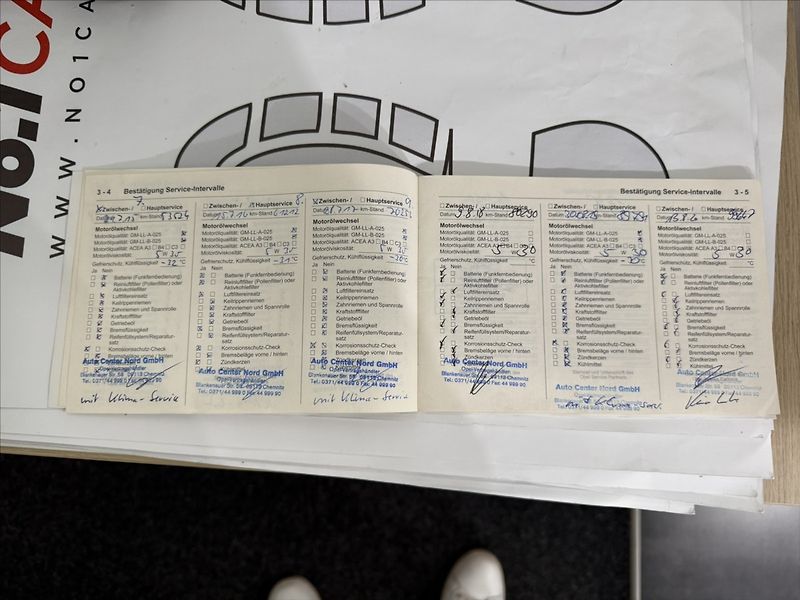 No.1 CA
WWW.NO1CA
3 - 4 Bestätigung Service-Intervalle
7.
Zwischen-/ Hauptservice
Datum km-Stand 53624
Motorölwechsel
Motorölqualität: GM-LL-A-025
Motorölqualität: GM-LL-B-025
Motorölqualität: ACEA A3 B4 C3
Motorölviskosität: 5 W 30
Gefrierschutz, Kühlflüssigkeit °C
Ja Nein
Batterie (Funkfernbedienung)
Reinluftfilter (Pollenfilter) oder
Aktivkohlefilter
Luftfiltereinsatz
Keilrippenriemen
Zahnriemen und Spannrolle
Kraftstofffilter
Getriebeöl
Bremsflüssigkeit
Reifenfüllsystem/Reparatur-
satz
Korrosionsschutz-Check
Bremsbeläge vorne / hinten
Auto Center Nord GmbH
Opelvertragshändler
Blankenauer Str. 58 09113 Chemnitz
Tel.: 0371/44 999 0 Fax 44 999 90
mit Klima-Service
8.
Zwischen-/ Hauptservice
Datum 15.7.14 km-Stand 61212
Motorölwechsel
Motorölqualität: GM-LL-A-025
Motorölqualität: GM-LL-B-025
Motorölqualität: ACEA A3 B4 C3
Motorölviskosität: 5 W 30
Gefrierschutz, Kühlflüssigkeit -31 °C
Ja Nein
Batterie (Funkfernbedienung)
Reinluftfilter (Pollenfilter) oder
Aktivkohlefilter
Luftfiltereinsatz
Keilrippenriemen
Zahnriemen und Spannrolle
Kraftstofffilter
Getriebeöl
Bremsflüssigkeit
Reifenfüllsystem/Reparatur-
satz
Korrosionsschutz-Check
Bremsbeläge vorne / hinten
Zündkerzen
Auto Center Nord GmbH
Opelvertragshändler
Blankenauer Str. 58 09113 Chemnitz
Tel.: 0371/44 999 0 Fax 44 999 90
9.
Zwischen-/ Hauptservice
Datum km-Stand
Motorölwechsel
Motorölqualität: GM-LL-A-025
Motorölqualität: GM-LL-B-025
Motorölqualität: ACEA A3 B4 C3
Motorölviskosität: 5 W 30
Gefrierschutz, Kühlflüssigkeit -30 °C
Ja Nein
Batterie (Funkfernbedienung)
Reinluftfilter (Pollenfilter) oder
Aktivkohlefilter
Luftfiltereinsatz
Keilrippenriemen
Zahnriemen und Spannrolle
Kraftstofffilter
Getriebeöl
Bremsflüssigkeit
Reifenfüllsystem/Reparatur-
satz
Korrosionsschutz-Check
Bremsbeläge vorne / hinten
Zündkerzen
Auto Center Nord GmbH
Opelvertragshändler
Blankenauer Str. 58 09113 Chemnitz
Tel.: 0371/44 999 0 Fax 44 999 90
mit Klima-Service
Bestätigung Service-Intervalle 3 - 5
Zwischen-/ Hauptservice
Datum km-Stand 80290
Motorölwechsel
Motorölqualität: GM-LL-A-025
Motorölqualität: GM-LL-B-025
Motorölqualität: ACEA A3 B4 C3
Motorölviskosität: 5 W 30
Gefrierschutz, Kühlflüssigkeit °C
Ja Nein
Batterie (Funkfernbedienung)
Reinluftfilter (Pollenfilter) oder
Aktivkohlefilter
Luftfiltereinsatz
Keilrippenriemen
Zahnriemen und Spannrolle
Kraftstofffilter
Getriebeöl
Bremsflüssigkeit
Reifenfüllsystem/Reparatur-
satz
Korrosionsschutz-Check
Bremsbeläge vorne / hinten
Zündkerzen
Auto Center Nord GmbH
Opelvertragshändler
Blankenauer Str. 58 09113 Chemnitz
Tel.: 0371/44 999 0 Fax 44 999 90
Zwischen-/ Hauptservice
Datum km-Stand
Motorölwechsel
Motorölqualität: GM-LL-A-025
Motorölqualität: GM-LL-B-025
Motorölqualität: ACEA A3 B4 C3
Motorölviskosität: 5 W 30
Gefrierschutz, Kühlflüssigkeit °C
Ja Nein
Batterie (Funkfernbedienung)
Reinluftfilter (Pollenfilter) oder
Aktivkohlefilter
Luftfiltereinsatz
Keilrippenriemen
Zahnriemen und Spannrolle
Kraftstofffilter
Getriebeöl
Bremsflüssigkeit
Reifenfüllsystem/Reparatur-
satz
Korrosionsschutz-Check
Bremsbeläge vorne / hinten
Zündkerzen
Kühlmittel
Auto Center Nord GmbH
Zwischen-/ Hauptservice
Datum km-Stand
Motorölwechsel
Motorölqualität: GM-LL-A-025
Motorölqualität: GM-LL-B-025
Motorölqualität: ACEA A3 B4 C3
Motorölviskosität: 5 W 30
Gefrierschutz, Kühlflüssigkeit °C
Ja Nein
Batterie (Funkfernbedienung)
Reinluftfilter (Pollenfilter) oder
Aktivkohlefilter
Luftfiltereinsatz
Keilrippenriemen
Zahnriemen und Spannrolle
Kraftstofffilter
Getriebeöl
Bremsflüssigkeit
Reifenfüllsystem/Reparatur-
satz
Korrosionsschutz-Check
Bremsbeläge vorne / hinten
Zündkerzen
Kühlmittel
Auto Center Nord GmbH